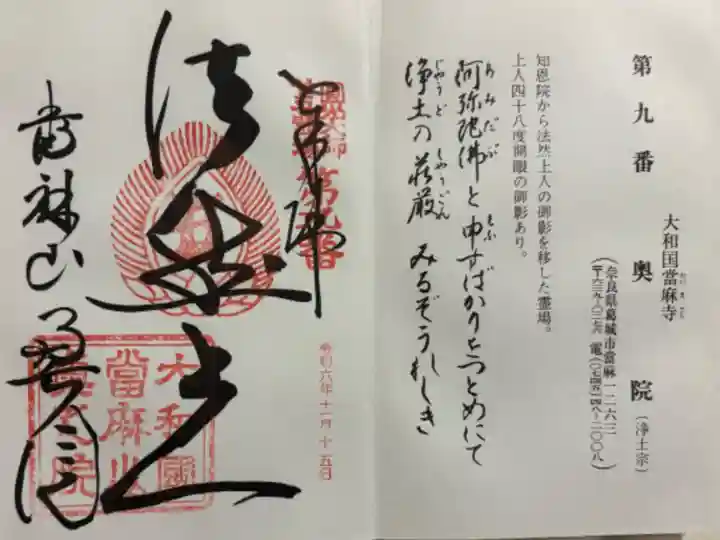 第九番 奥院 (浄土宗)
大和国當麻寺
(奈良県葛城市當麻一二六三
〒六三九―〇二七六 電(〇七四五)四八―二〇〇八)
知恩院から法然上人の御影を移した霊場。
上人四十八度開眼の御影あり。
阿弥陀佛と申すばかりをつとめにて
浄土の荘厳 みるぞうれしき
第九番
法然上人
令和六年十一月十五日
大和國
當麻山
奥之院
當麻山